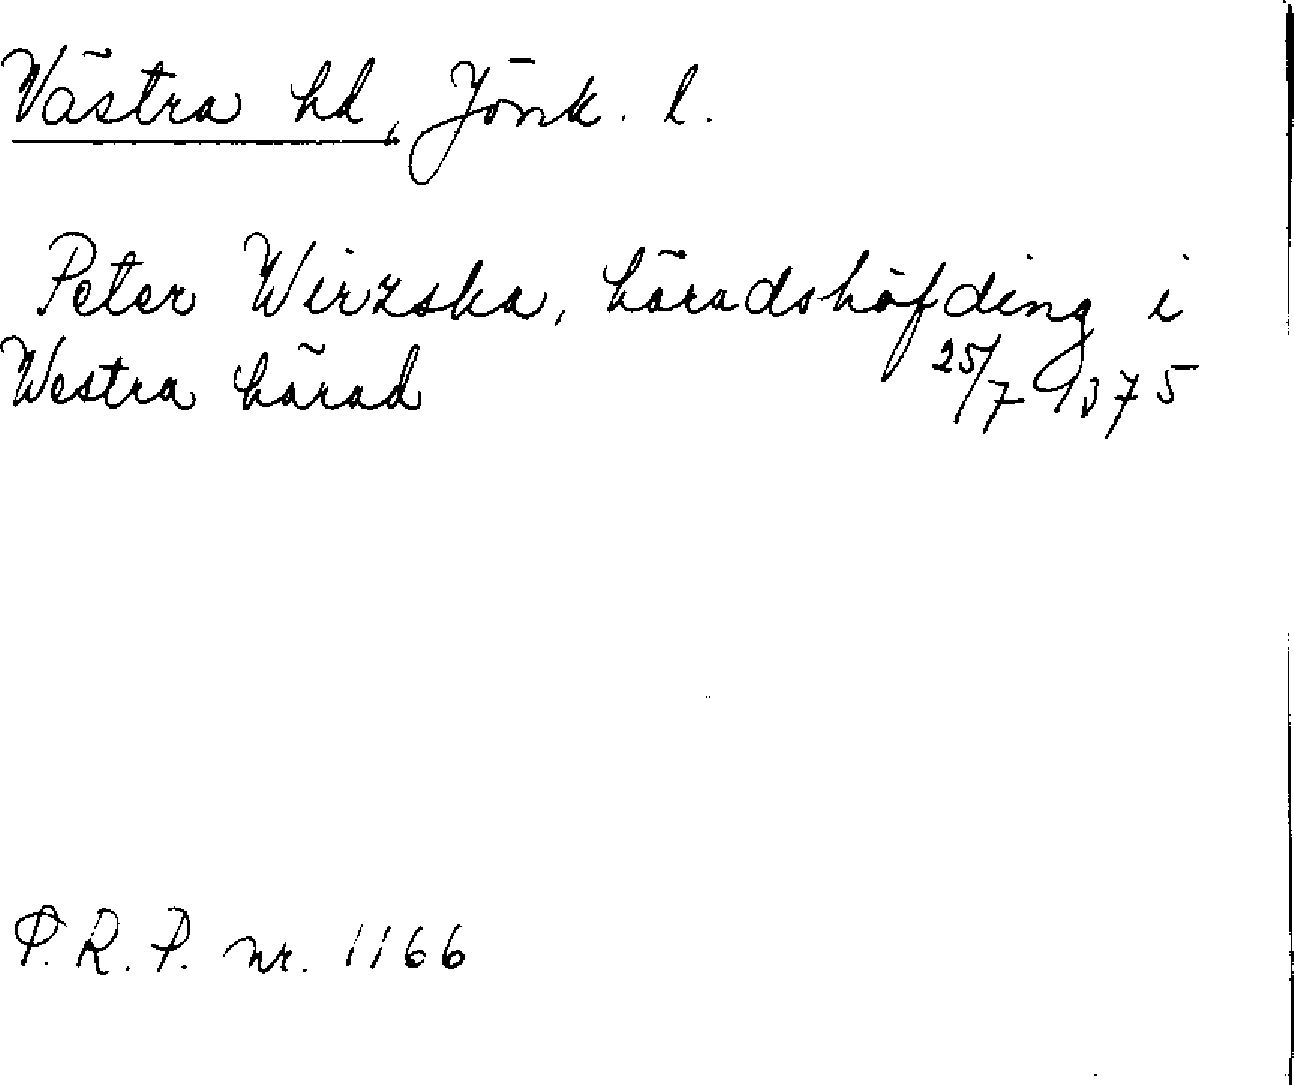 Västra hd, Jönk. l.
Peter Wirzska, häradshöfding i
Westra härad 25/7 1375
P.R.P. nr. 1166